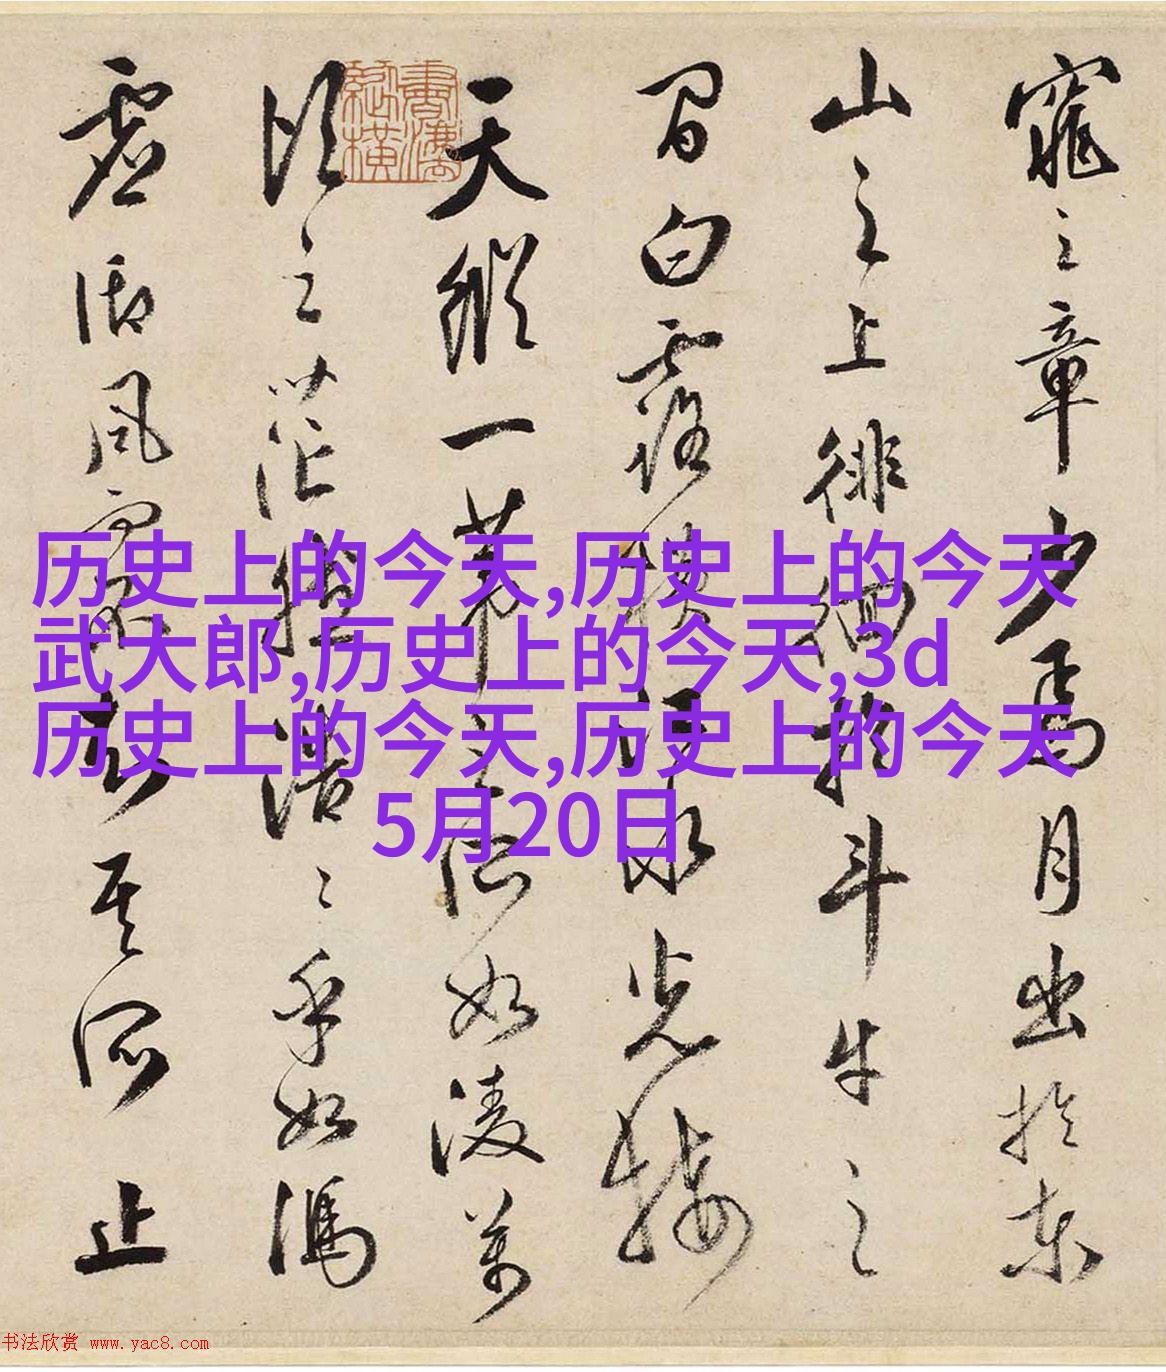 窕之章少焉月出於東
山之上徘徊於斗牛之
間白露橫江水光接
天縱一葦之所如凌萬
頃之茫然浩〻乎如馮
虛御風而不知其所止
历史上的今天,历史上的今天
武大郎,历史上的今天,3d
历史上的今天,历史上的今天
5月20日
书法欣赏 www.yac8.com